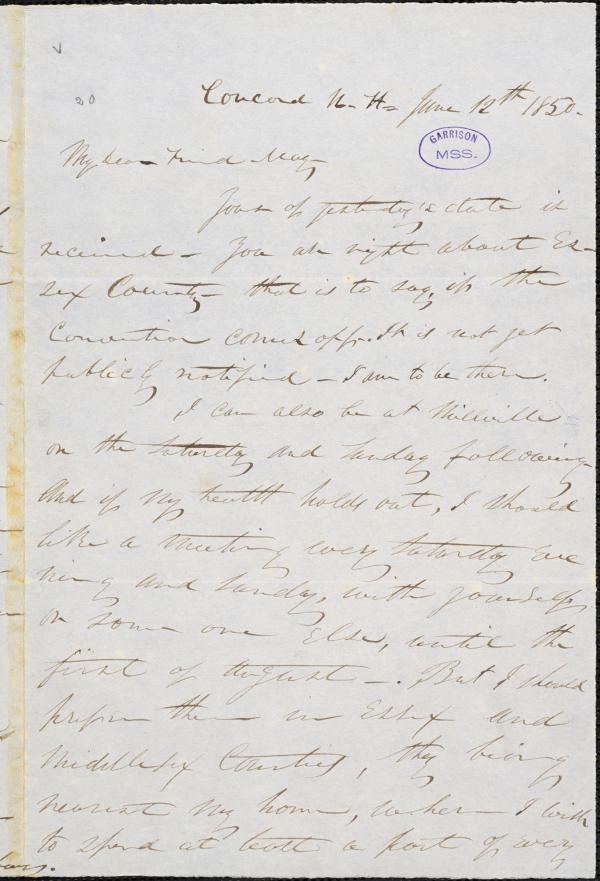 20
Concord N. H. June 12th 1850.
GARRISON
MSS.
My Dear Friend May
Yours of yesterday's date is
received - You are right about Es-
sex County - that is to say, if the
Convention comes off. It is not yet
publicly notified - I am to be there.
I can also be at Millville
on the Saturday and Sunday following
And if my health holds out, I should
like a meeting every Saturday eve
ning and Sunday, with yourself,
or some one Else, until the
first of August -. But I should
prefer them in Essex and
Middlesex Counties, they being
nearest my home, where I wish
to spend at least a part of every